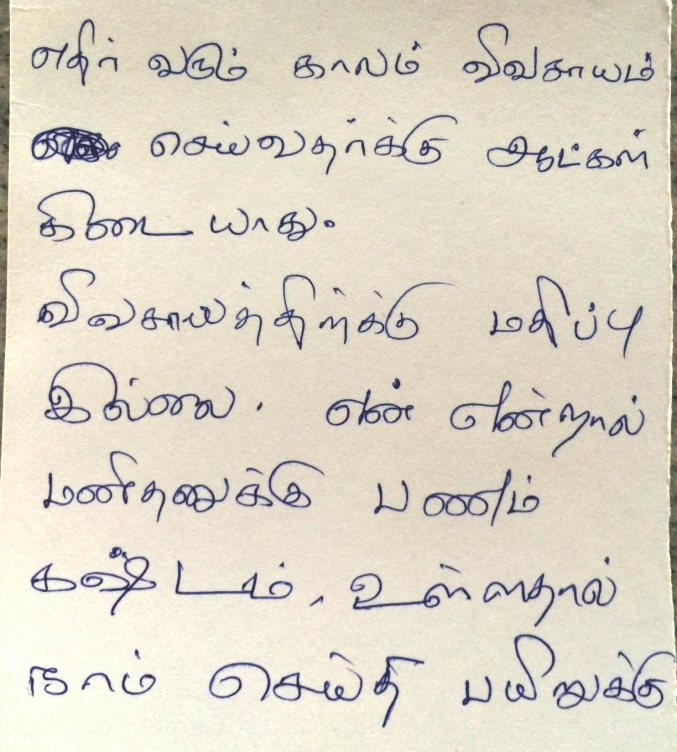 எதிர் வரும் காலம் விவசாயம்
செய்வதர்க்கு ஆட்கள்
கிடையாது.
விவசாயத்திர்க்கு மதிப்பு
இல்லை. என் என்றால்
மனிதனுக்கு பணம்
கஷ்டம். உள்ளதால்
நாம் செய்தி பயிறுக்கு